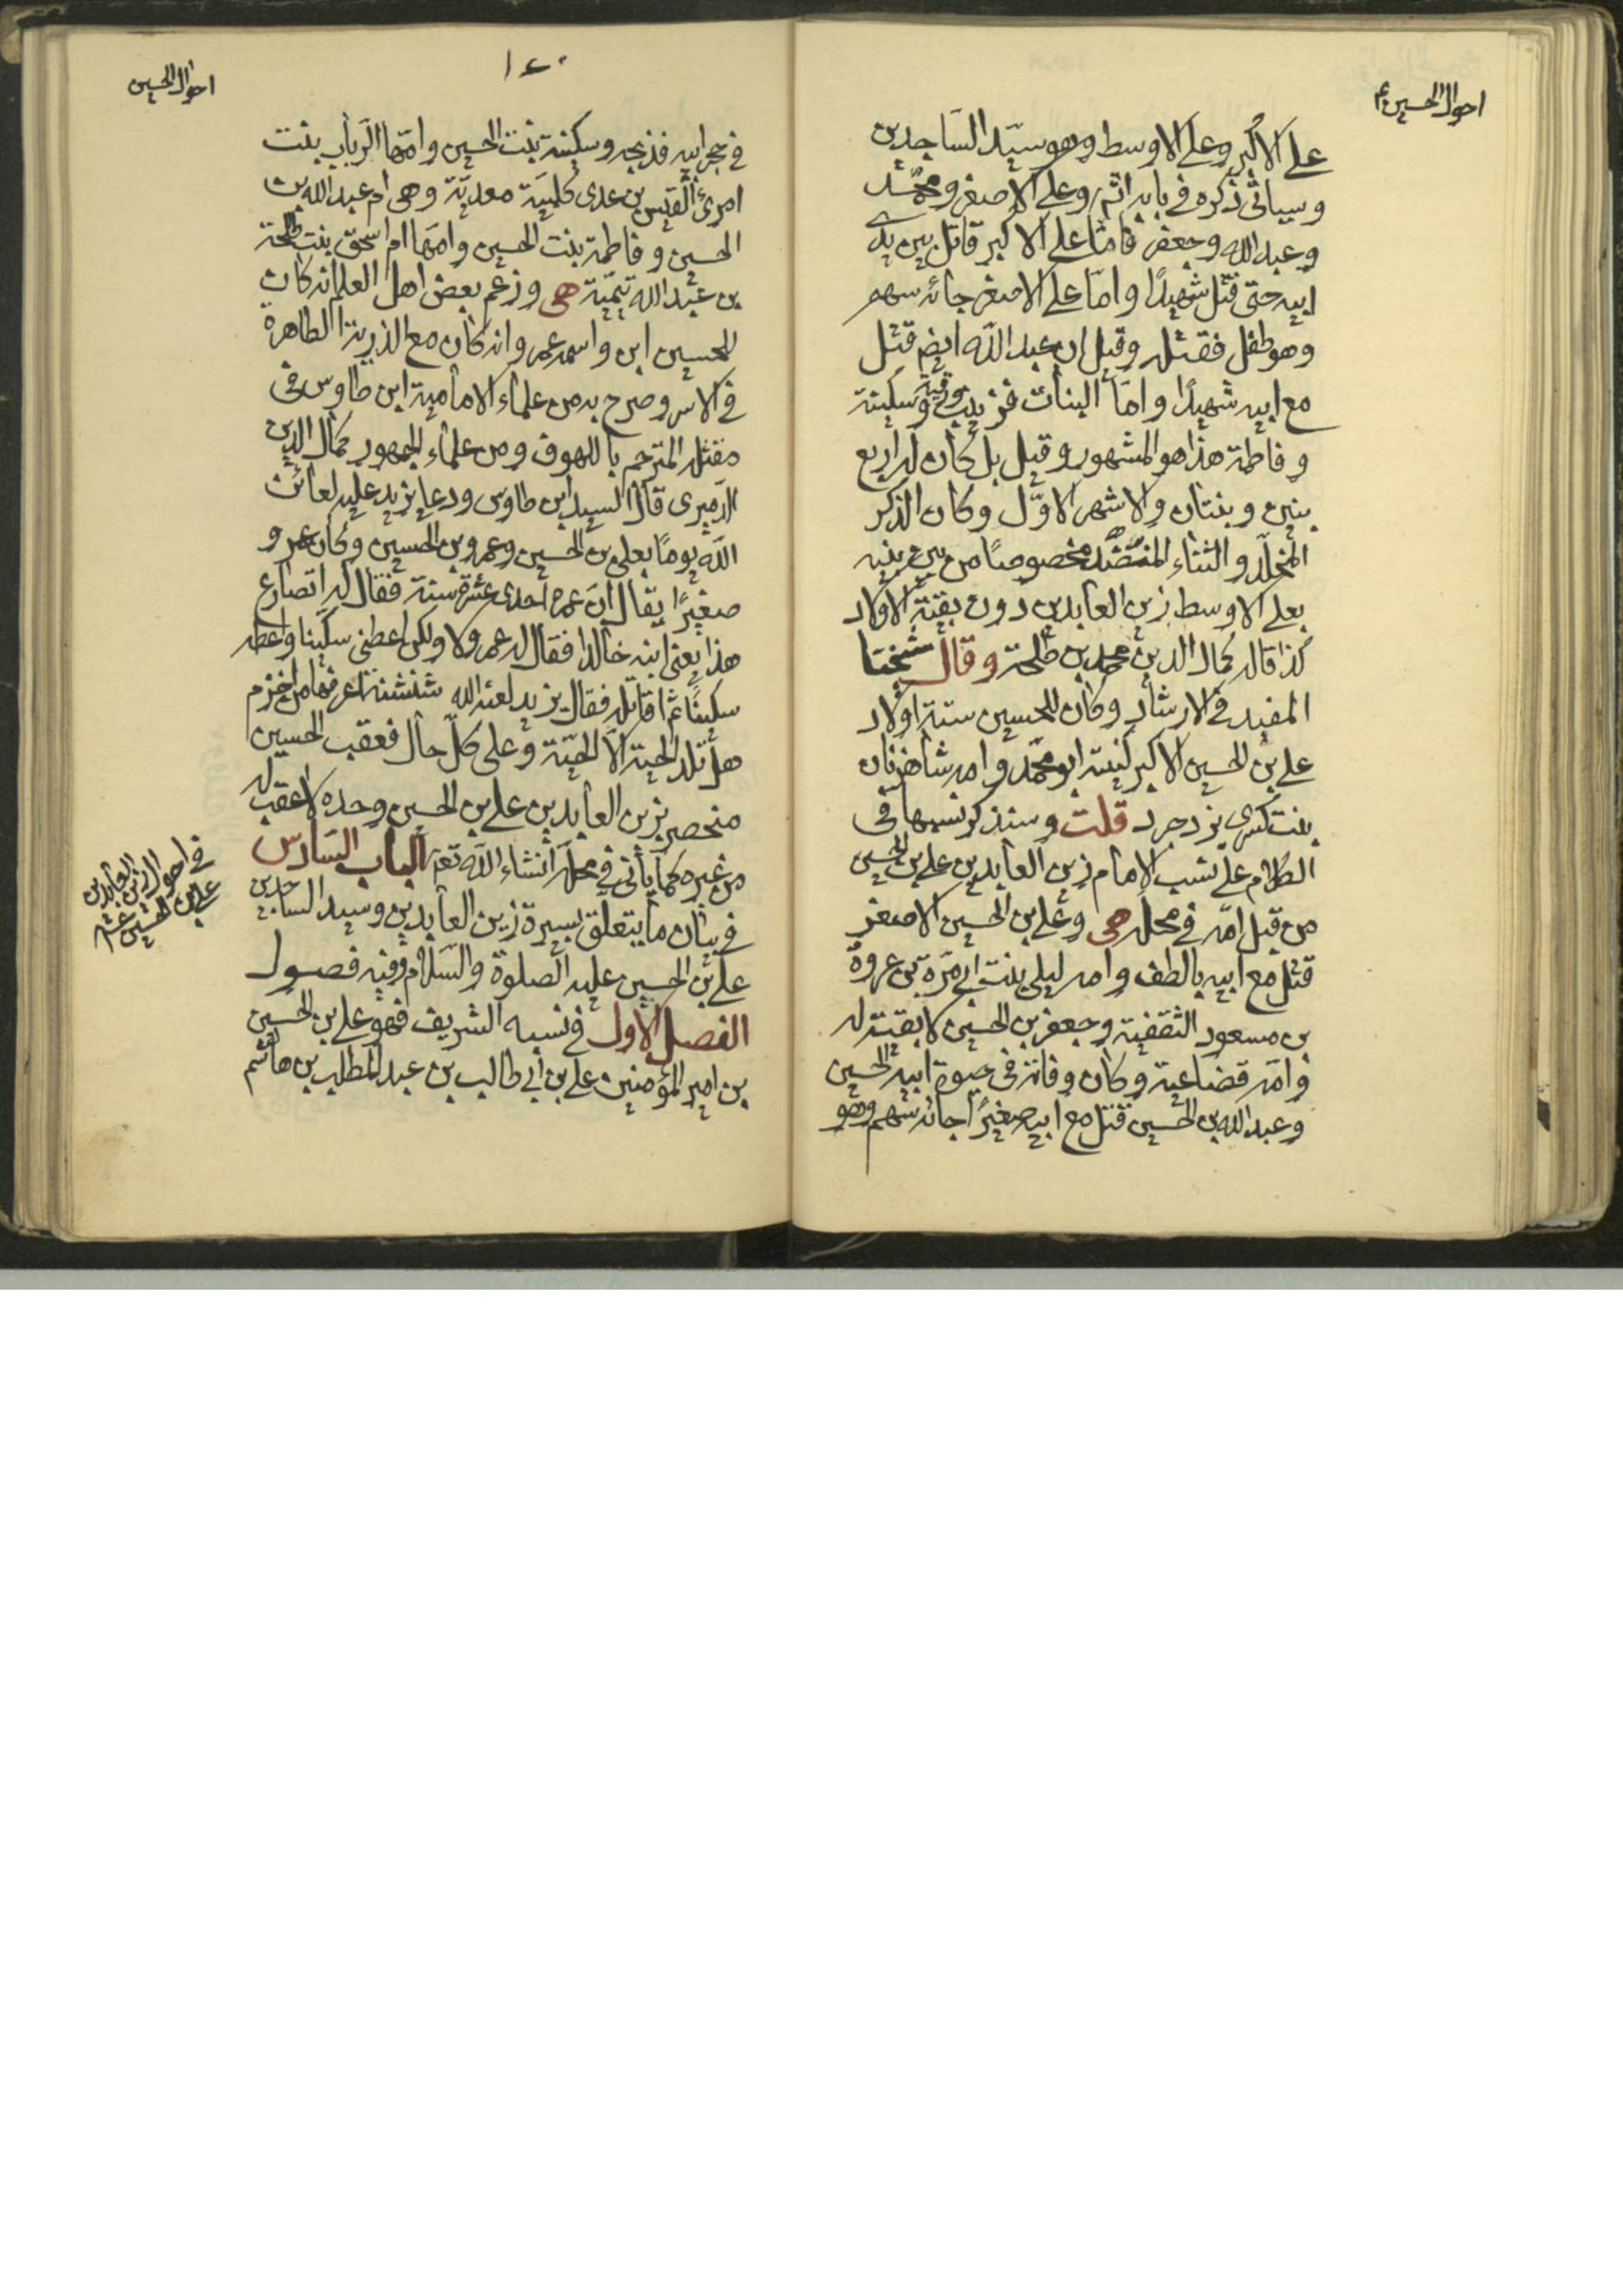 احوال الحسين ع
على الاكبر وعلى الاوسط وهو سيّد الساجدين
وسياتى ذكره فى بابه اثم وعلى الاصغر ومحمّد
وعبد الله وجعفر فامّا على الاكبر قاتل بين يدى
ابيه حتى قتل شهيدًا وامّا على الاصغر جائه سهم
وهو طفل فقتله وقيل ان عبد الله ايضم قتل
مع ابيه شهيدًا وامّا البنات فزينب ورقية وسكينة
وفاطمة هذا هو المشهور وقيل بل كان له اربع
بنين وبنتان والاشهر الاوّل وكان الذكر
المخلّد والثناء المنضّد مخصوصًا من بين بنيه
بعلى الاوسط زين العابدين دون بقيّة الاولاد
كذا قاله كمال الدين محمد بن طلحة وقال شيخنا
المفيد فى الارشاد وكان للحسين ستة اولاد
على بن الحسين الاكبر كنيته ابو محمّد وامه شاهزنان
بنت كسرى يزدجرد قلت وسنذكر نسبها فى
الكلام على نسب الامام زين العابدين على بن الحسين
من قبل امّه فى محله هى وعلى بن الحسين الاصغر
قتل مع ابيه بالطف وامه ليلى بنت ابى مرّة بن عروة
بن مسعود الثقفية وجعفر بن الحسين لا بقيّة له
وامّه قضاعية وكان وفاته فى حيوة ابيه الحسين
وعبد الله بن الحسين قتل مع ابيه صغيرًا جائه سهم وهو
١٤٠
احوال الحسين
فى حجر ابيه فذبحه وسكينة بنت الحسين وامّها الرباب بنت
امرئ القيس بن عدى كلبيّة معديّة وهى ام عبد الله بن
الحسين وفاطمة بنت الحسين وامّها ام اسحق بنت طلحة
بن عبد الله تيميّة هى وزعم بعض اهل العلم انه كان
للحسين ابن واسمه عمر وانه كان مع الذرية الطاهرة
فى الاسر وصرح به من علماء الامامية ابن طاوس فى
مقتله المترجم باللهوف ومن علماء الجمهور كمال الدين
الدميرى قال السيد ابن طاوس ودعا يزيد عليه لعائن
الله يومًا بعلى بن الحسين وعمرو بن الحسين وكان عمرو
صغيرًا يقال ان عمره احدى عشرة سنة فقال له اتصارع
هذا يعنى ابنه خالدا فقال له عمرو لا ولكن اعطنى سكّينا واعطه
سكينًا ثم اقاتله فقال يزيد لعنه الله شنشنة اعرفها من اخزم
هل تلد الحية الا الحيّة وعلى كلّ حال فعقب الحسين
منحصر بزين العابدين على بن الحسين وحده لا عقب له
من غيره كما ياتى فى محله انشاء الله تعم الباب السادس
فى بيان ما يتعلق بسيرة زين العابدين وسيد الساجدين
على بن الحسين عليه الصلوة والسلام وفيه فصول
الفصل الاول فى نسبه الشريف فهو على بن الحسين
بن امير المؤمنين على بن ابى طالب بن عبد المطلب بن هاشم
فى احوال زين العابدين
على بن الحسين